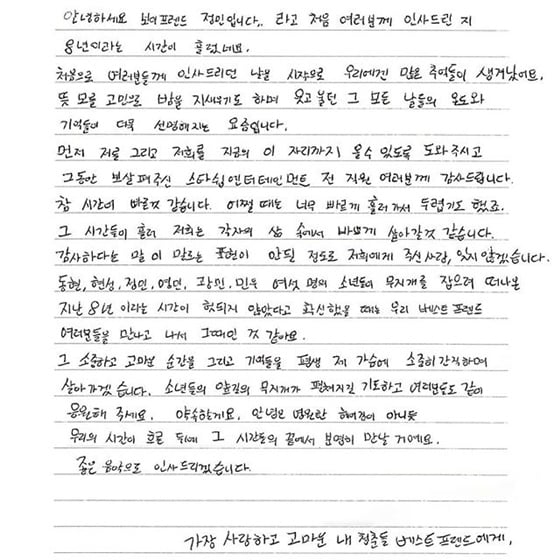 안녕하세요 보이프렌드 정민입니다.. 라고 처음 여러분께 인사드린 지
8년이라는 시간이 흘렀네요.
처음으로 여러분들께 인사드리던 날을 시작으로 우리에겐 많은 추억들이 생겨났어요.
뜻 모를 고민으로 밤을 지새우기도 하며 웃고 울던 그 모든 날들의 온도와
기억들이 더욱 선명해지는 요즘입니다.
먼저 저를 그리고 저희를 지금의 이 자리까지 올 수 있도록 도와주시고
그동안 보살펴 주신 스타쉽엔터테인먼트 전 직원 여러분께 감사드립니다.
참 시간이 빠른것 같습니다. 어쩔 때는 너무 빠르게 흘러가서 두렵기도 했죠.
그 시간들이 흘러 저희는 각자의 삶 속에서 바쁘게 살아갈것 같습니다.
감사하다는 말이 마르는 표현이 안될 정도로 저희에게 주신 사랑, 잊지 않겠습니다.
동현, 현성, 정민, 영민, 광민, 민우 여섯 명의 소년들이 무지개를 잡으려 떠나온
지난 8년 이라는 시간이 헛되지 않았다고 확신했을 때는 우리 베스트 프렌드
여러분들을 만나고 나서 그때인 것 같아요.
그 소중하고 고마운 순간들 그리고 기억들을 평생 제 가슴에 소중히 간직하며
살아가겠습니다. 소년들의 앞길의 무지개가 펼쳐지길 기도하고 여러분들도 같이
응원해 주세요. 약속할게요. 안녕은 영원한 헤어짐이 아니듯
우리의 시간이 흐른 뒤에 그 시간들의 끝에서 분명히 만날 거에요.
좋은 음악으로 인사드리겠습니다.
가장 사랑하고 고마운 내 청춘들 베스트프렌드에게.